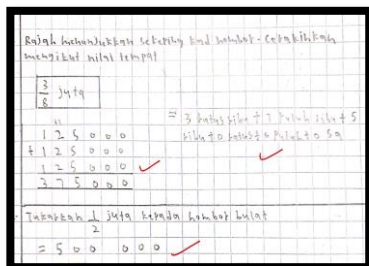 Rajah menunjukkan sekeping kad nombor. Cerakinkan
mengikut nilai tempat
3/8 juta
11
125000
+ 125000
125000
375000
= 3 ratus ribu + 7 puluh ribu + 5
ribu + 0 ratus + 0 puluh + 0 sa
Tukarkan 1/2 juta kepada nombor bulat
= 500 000